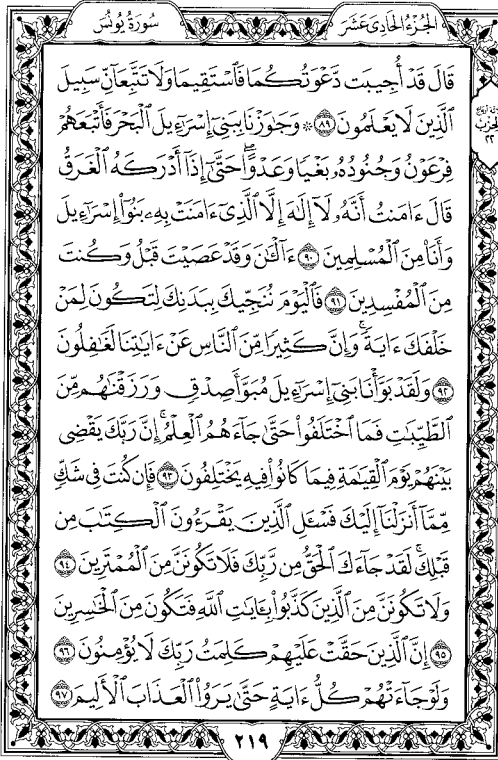 الجزء الحادى عشر
سورة يونس
قَالَ قَدْ أُجِيبَت دَّعْوَتُكُمَا فَٱسْتَقِيمَا وَلَا تَتَّبِعَآنِّ سَبِيلَ
ٱلَّذِينَ لَا يَعْلَمُونَ ﴿٨٩﴾ ۞ وَجَٰوَزْنَا بِبَنِىٓ إِسْرَٰٓءِيلَ ٱلْبَحْرَ فَأَتْبَعَهُمْ
فِرْعَوْنُ وَجُنُودُهُۥ بَغْيًا وَعَدْوًا ۖ حَتَّىٰٓ إِذَآ أَدْرَكَهُ ٱلْغَرَقُ
قَالَ ءَامَنتُ أَنَّهُۥ لَآ إِلَٰهَ إِلَّا ٱلَّذِىٓ ءَامَنَتْ بِهِۦ بَنُوٓا۟ إِسْرَٰٓءِيلَ
وَأَنَا۠ مِنَ ٱلْمُسْلِمِينَ ﴿٩٠﴾ ءَآلْـَٰٔنَ وَقَدْ عَصَيْتَ قَبْلُ وَكُنتَ
مِنَ ٱلْمُفْسِدِينَ ﴿٩١﴾ فَٱلْيَوْمَ نُنَجِّيكَ بِبَدَنِكَ لِتَكُونَ لِمَنْ
خَلْفَكَ ءَايَةً ۚ وَإِنَّ كَثِيرًا مِّنَ ٱلنَّاسِ عَنْ ءَايَٰتِنَا لَغَٰفِلُونَ
﴿٩٢﴾ وَلَقَدْ بَوَّأْنَا بَنِىٓ إِسْرَٰٓءِيلَ مُبَوَّأَ صِدْقٍ وَرَزَقْنَٰهُم مِّنَ
ٱلطَّيِّبَٰتِ فَمَا ٱخْتَلَفُوا۟ حَتَّىٰ جَآءَهُمُ ٱلْعِلْمُ ۚ إِنَّ رَبَّكَ يَقْضِى
بَيْنَهُمْ يَوْمَ ٱلْقِيَٰمَةِ فِيمَا كَانُوا۟ فِيهِ يَخْتَلِفُونَ ﴿٩٣﴾ فَإِن كُنتَ فِى شَكٍّ
مِّمَّآ أَنزَلْنَآ إِلَيْكَ فَسْـَٔلِ ٱلَّذِينَ يَقْرَءُونَ ٱلْكِتَٰبَ مِن
قَبْلِكَ ۚ لَقَدْ جَآءَكَ ٱلْحَقُّ مِن رَّبِّكَ فَلَا تَكُونَنَّ مِنَ ٱلْمُمْتَرِينَ ﴿٩٤﴾
وَلَا تَكُونَنَّ مِنَ ٱلَّذِينَ كَذَّبُوا۟ بِـَٔايَٰتِ ٱللَّهِ فَتَكُونَ مِنَ ٱلْخَٰسِرِينَ
﴿٩٥﴾ إِنَّ ٱلَّذِينَ حَقَّتْ عَلَيْهِمْ كَلِمَتُ رَبِّكَ لَا يُؤْمِنُونَ ﴿٩٦﴾
وَلَوْ جَآءَتْهُمْ كُلُّ ءَايَةٍ حَتَّىٰ يَرَوُا۟ ٱلْعَذَابَ ٱلْأَلِيمَ ﴿٩٧﴾
الحزب
٢٢
٢١٩